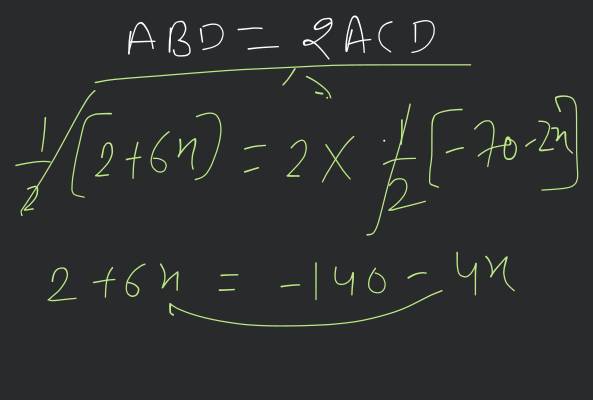 ABD = 2ACD
1/2 [2+6x] = 2 × 1/2 [-70-2x]
2+6x = -140-4x